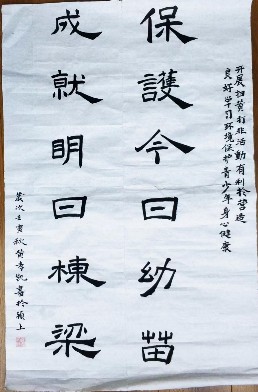 开展扫黄打非活動有利於营造
良好学习环境保护青少年身心健康
保護今日幼苗
成就明日棟梁
歲次壬寅秋黄孝凯書於颍上